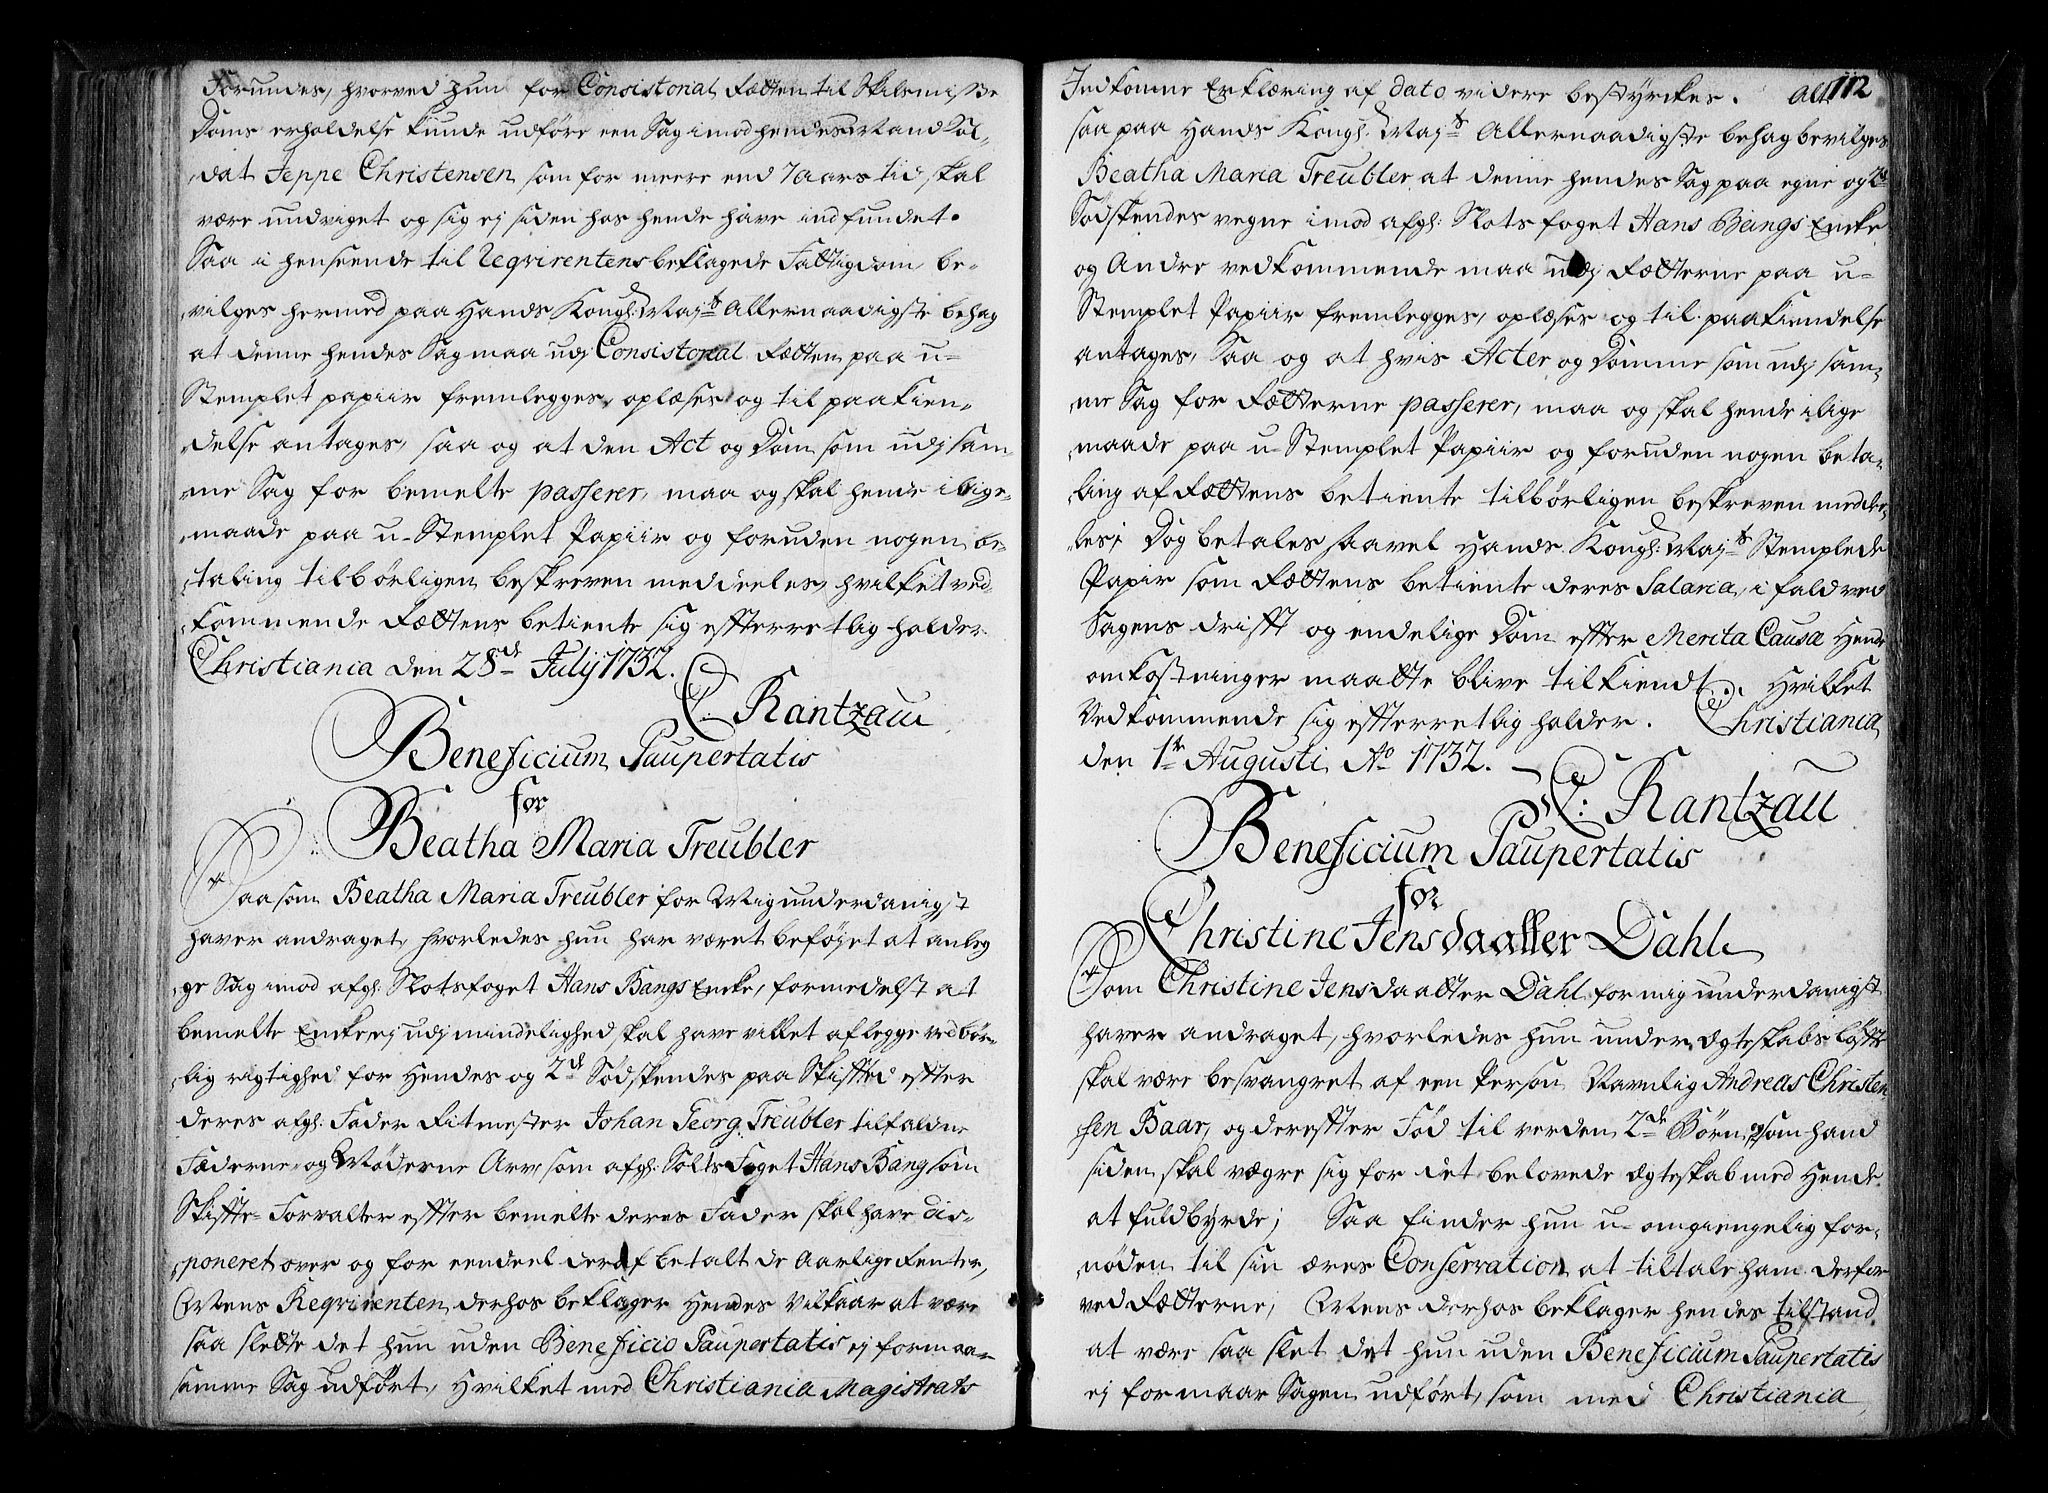 Forundes, hvorved hun for Consistorial Rætten til Skilsmisse
Doms erholdelse kunde udføre een Sag imod hendes Mand Sol-
dat Jeppe Christensen som for meere end 7 aars tid skal
være undviget og sig ej siden hos hende have indfundet.
Saa i henseende til Reqvirentens beklagede Fattigdom, be-
vilges hermed paa Hands Kongl: Majts Allernaadigste behag
at denne hendes Sag maa udj Consistorial Rætten paa u-
Stemplet papiir fremlegges, oplæses og til paakien-
delse antages, saa og at den Act og Dom som udj sam-
me Sag for bemelte passerer, maa og skal hende i lige-
maade paa u-Stemplet Papiir og foruden nogen be-
taling tilbørligen beskreven meddeeles, hvilket ved-
kommende Rættens betiente sig effterretlig holder.
Christiania den 28de July 1732.
C. Rantzau
Beneficium Paupertatis
for
Beatha Maria Treubler
Saasom Beatha Maria Treubler for Mig underdanigst
haver andraget, hvorledes hun har været beføyet at anleg
ge Sag imod afgl. Slotsfoget Hans Bangs Encke, formedelst at
bemelte Encke, ej udj mindelighed skal have villet aflegge vedbør-
lig rigtighed for Hendes og 2de Sødskendes paa Skifftet effter
deres afgl: Fader Ritmester Johan Georg Treubler tilfaldne
Fæderne- og Møderne Arv, som afgl. Solts Foget Hans Bang som
Skiffte-Forvalter effter bemelte deres Fader skal have dis-
poneret over og for eendeel deraf betalt de Aarlige Renter,
Mens Reqvirenten derhos beklager Hendes Vilkaar at være
saa slette det hun uden Beneficio Paupertatis ej formaar
samme Sag udført, Hvilket med Christiania Magistrats
112
Indkomne Erklæring af dato videre bestyrckes. Alt
saa paa Hands Kongl: Majts Allernaadigste behag bevilges
Beatha Maria Treubler at denne hendes Sag paa egne og 2de
Sødskendes vegne imod afgl: Slots foget Hans Bangs Encke
og Andre vedkommende maa udj Rætterne paa u-
Stemplet Papiir fremlegges, oplæses og til paakiendelse
antages, Saa og at hvis Acter og Domme som udj sam-
me Sag for Rætterne passerer, maa og skal hende i lige
maade paa u-Stemplet Papiir og foruden nogen beta-
ling af Rættens betiente tilbørligen beskreven meddee-
les; Dog betales saavel Hands Kongl: Majts Stemplede
Papir som Rættens betiente deres Salaria, i fald ved
Sagens drifft og endelige Dom effter Merita Causæ Hende
omkostninger maatte blive tilkiendt. Hvilket
Vedkommende sig effterretlig holder. Christiania
den 1te Augusti Ao 1732.
C: Rantzau
Beneficium Paupertatis
for
Christine Jensdaatter Dahl
Som Christine Jensdaatter Dahl for mig underdanigst
haver andraget, hvorledes hun under Ægteskabs løffte
skal være besvangret af een Person Navnlig Andreas Christen
sen Baar, og dereffter Fød til verden 2de Børn, som hand
siden skal vægre sig for det belovede Ægteskab med Hende
at fuldbyrde; Saa finder hun u-omgiengelig for-
nøden til sin æres Conservation at tiltale ham derfor
ved Rætterne, Mens derhos beklager hendes tilstand
at være saa slet det hun uden Beneficium Paupertatis
ej formaar Sagen udført, som med Christiania